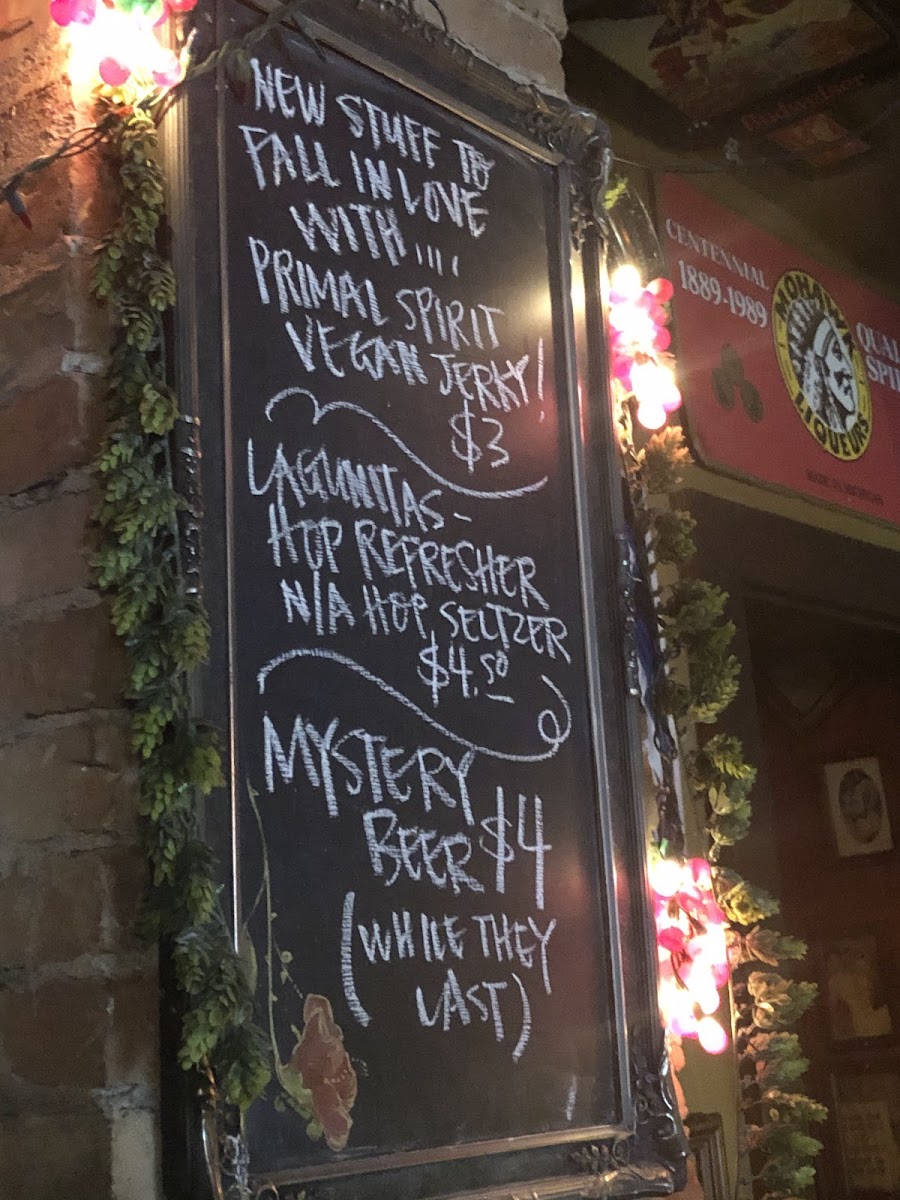 NEW STUFF TO
FALL IN LOVE
WITH....
PRIMAL SPIRIT
VEGAN JERKY!
$3
LAGUNITAS-
HOP REFRESHER
N/A HOP SELTZER
$4.50
MYSTERY
BEER $4
(WHILE THEY
LAST)
Budweiser
CENTENNIAL
1889-1989
MOHAWK
LIQUEURS
QUAL
SPI
MADE IN MICHIGAN